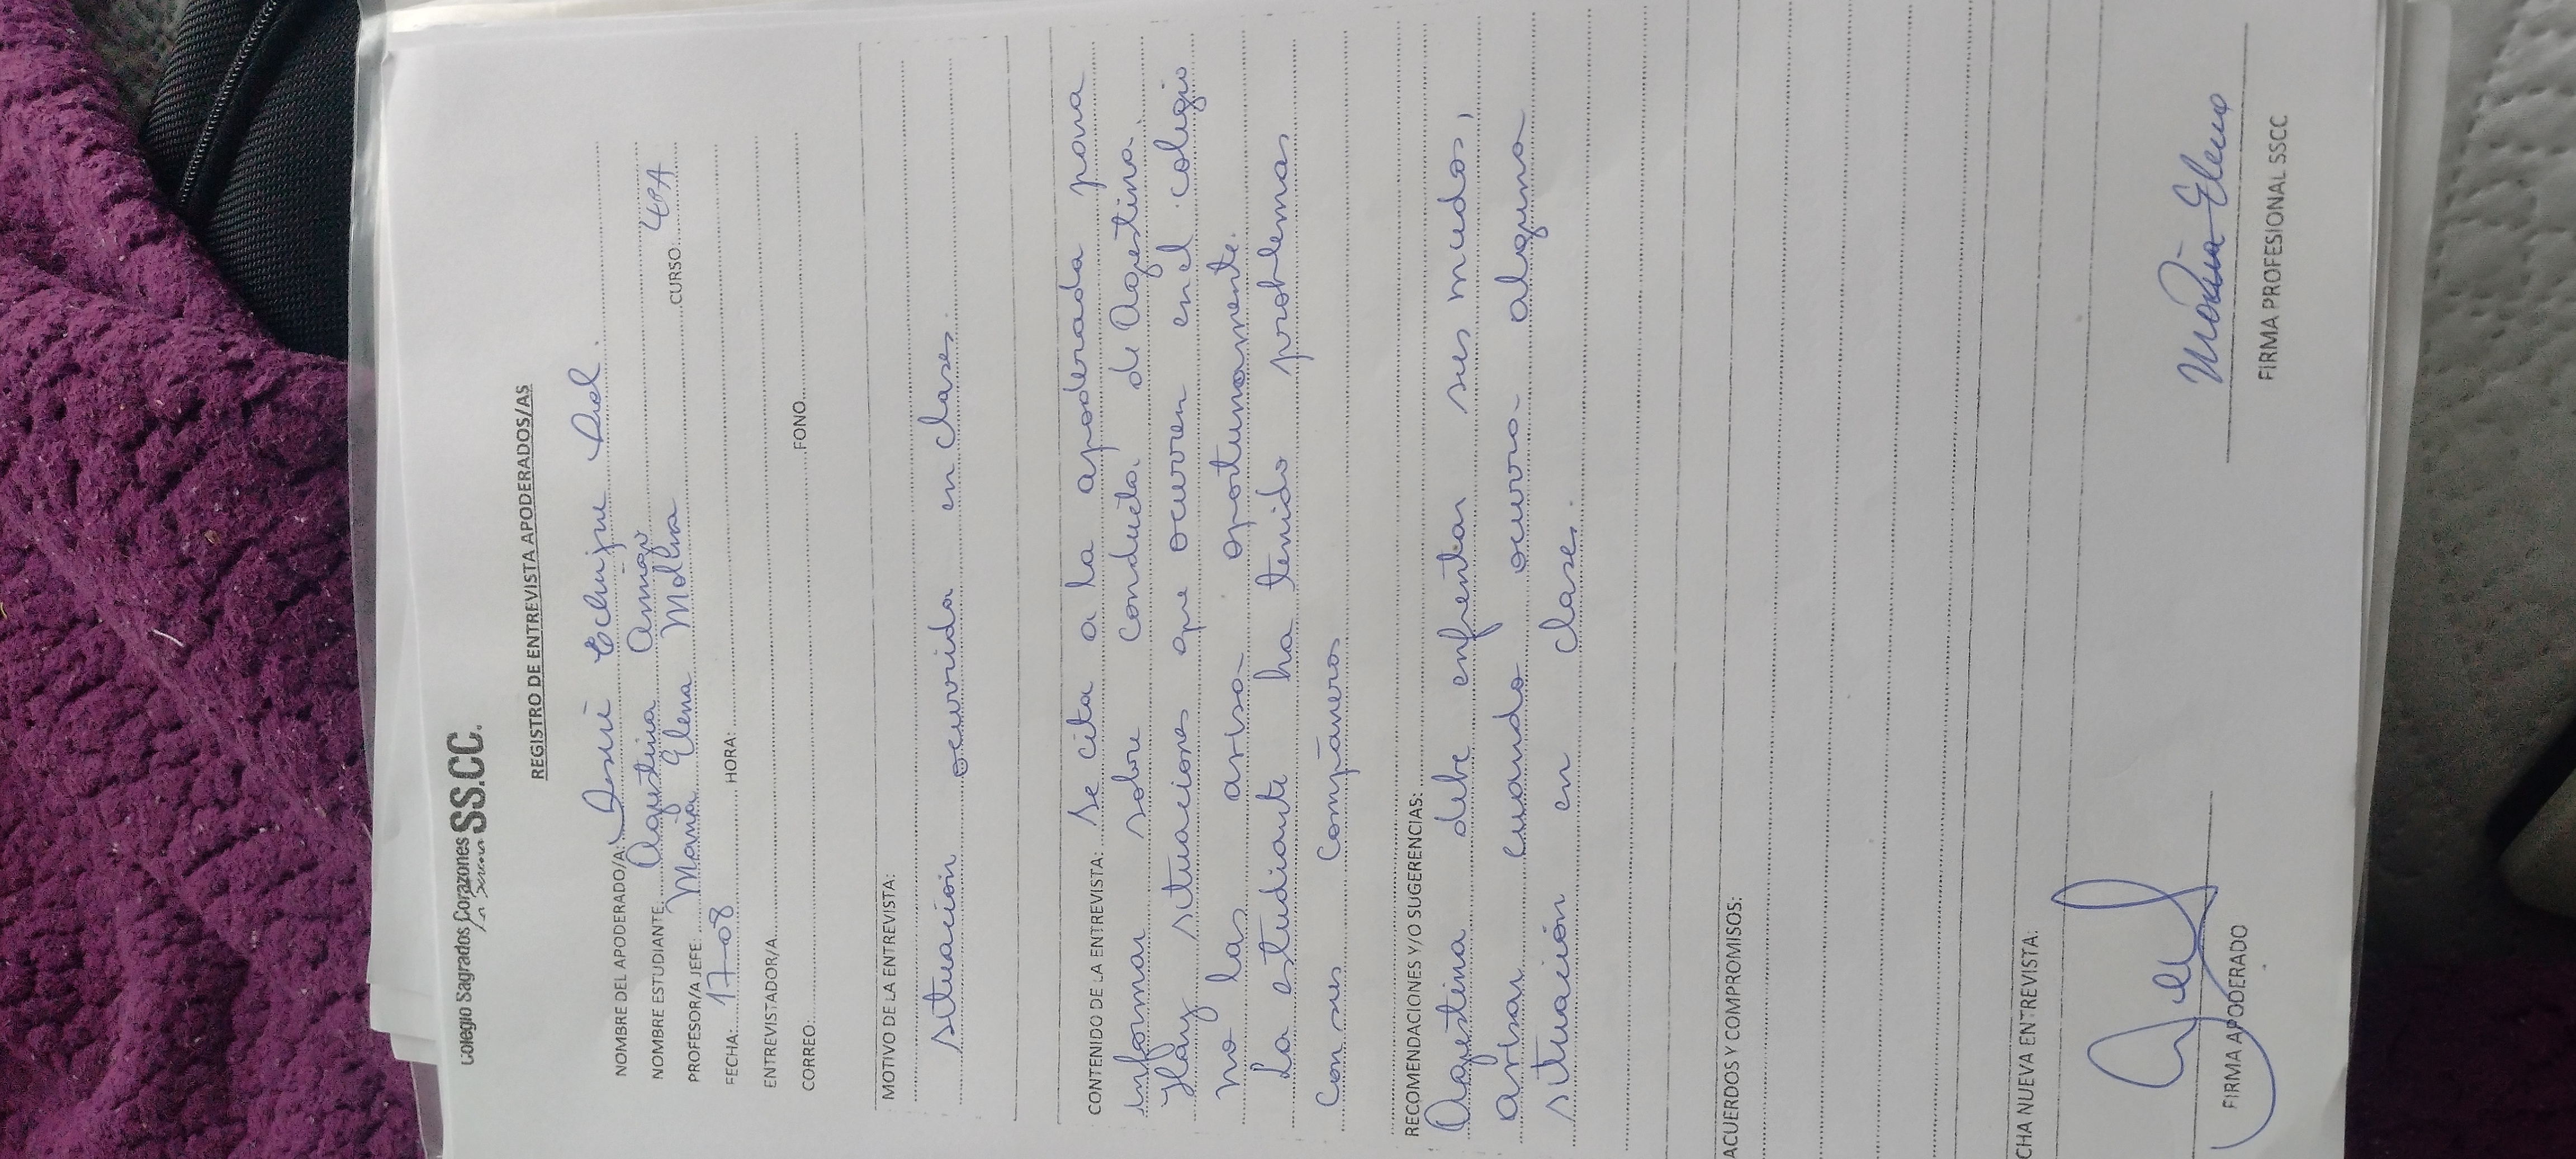 Colegio Sagrados Corazones SS.CC.
La Serena
REGISTRO DE ENTREVISTA APODERADOS/AS
NOMBRE DEL APODERADO/A:
NOMBRE ESTUDIANTE: Agustina
PROFESOR/A JEFE: María Elena Molina CURSO: 4ºA
FECHA: 17-08 HORA:
ENTREVISTADOR/A
CORREO: FONO
MOTIVO DE LA ENTREVISTA:
situación ocurrida en clases.
CONTENIDO DE LA ENTREVISTA: Se cita a la apoderada para
informar sobre conducta de Agustina.
Hay situaciones que ocurren en el colegio
no las avisa oportunamente.
La estudiante ha tenido problemas
con sus compañeros
RECOMENDACIONES Y/O SUGERENCIAS:
Agustina debe enfrentar sus miedos,
avisar cuando ocurra alguna
situación en clase.
ACUERDOS Y COMPROMISOS:
CHA NUEVA ENTREVISTA:
María Elena
FIRMA APODERADO FIRMA PROFESIONAL SSCC